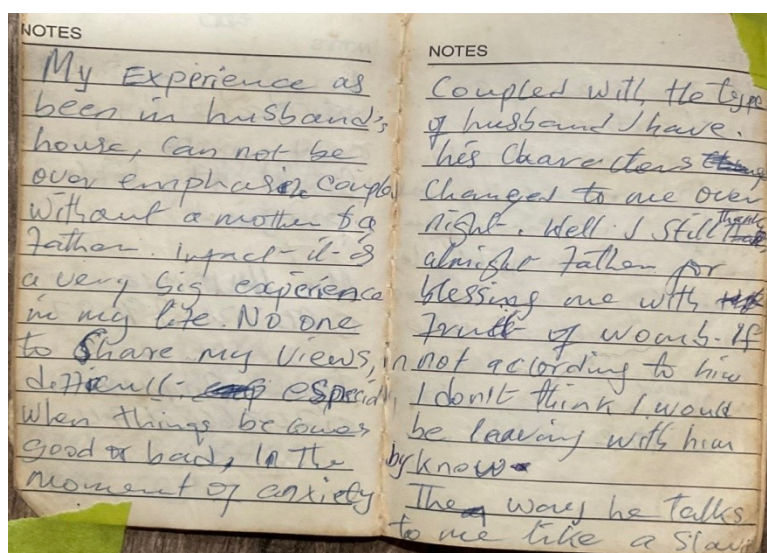 NOTES
My Experience as
been in husband's
house, can not be
over emphasize coupled
without a mother to a
Father. infact it is
a very big experience
in my life. No one
to Share my views, in
difficult especially
when things becomes
good or bad, In the
moment of anxiety
NOTES
Coupled with the type
of husband I have.
his Characters
changed to me over
night. Well I still Thank
almight Father for
blessing me with
Fruit of womb. If
not acording to him
I don't think I would
be leaving with him
by know
The way he talks
to me like a Slave